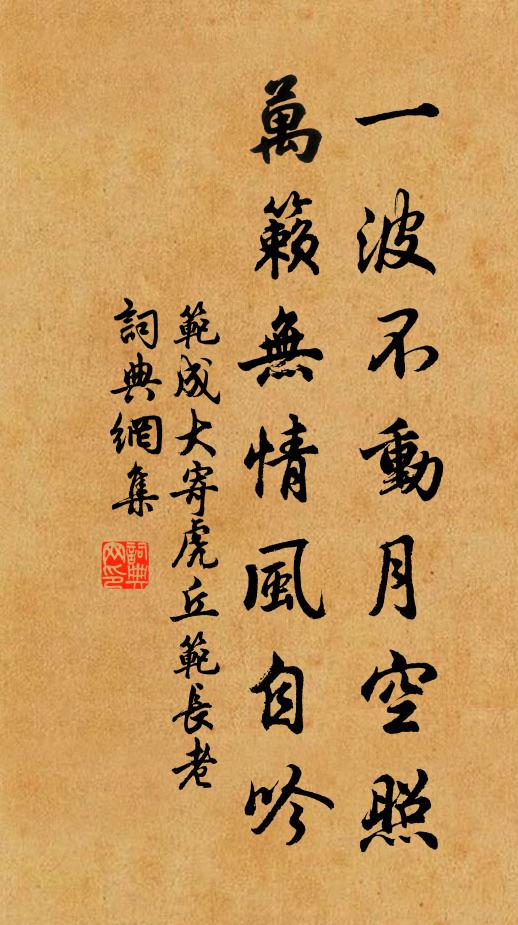 一波不動月空照
萬籟無情風自吟
範成大寄虎丘範長老
詞典網集
詞典
网印